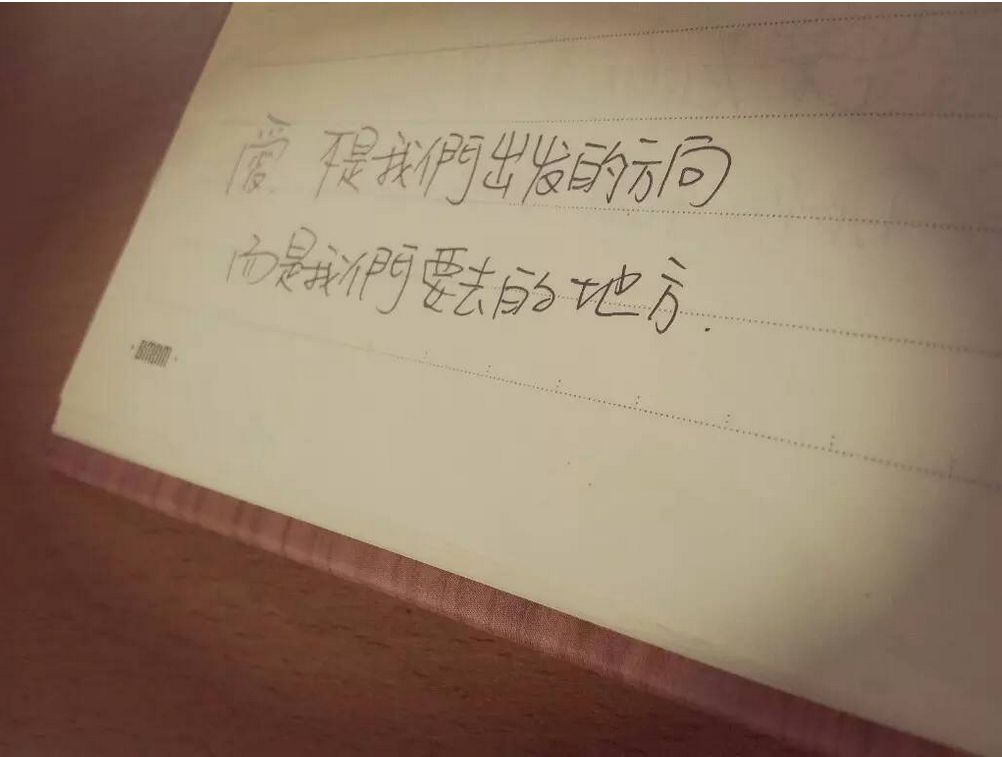 愛 不是我們出发的方向
而是我們要去的地方.